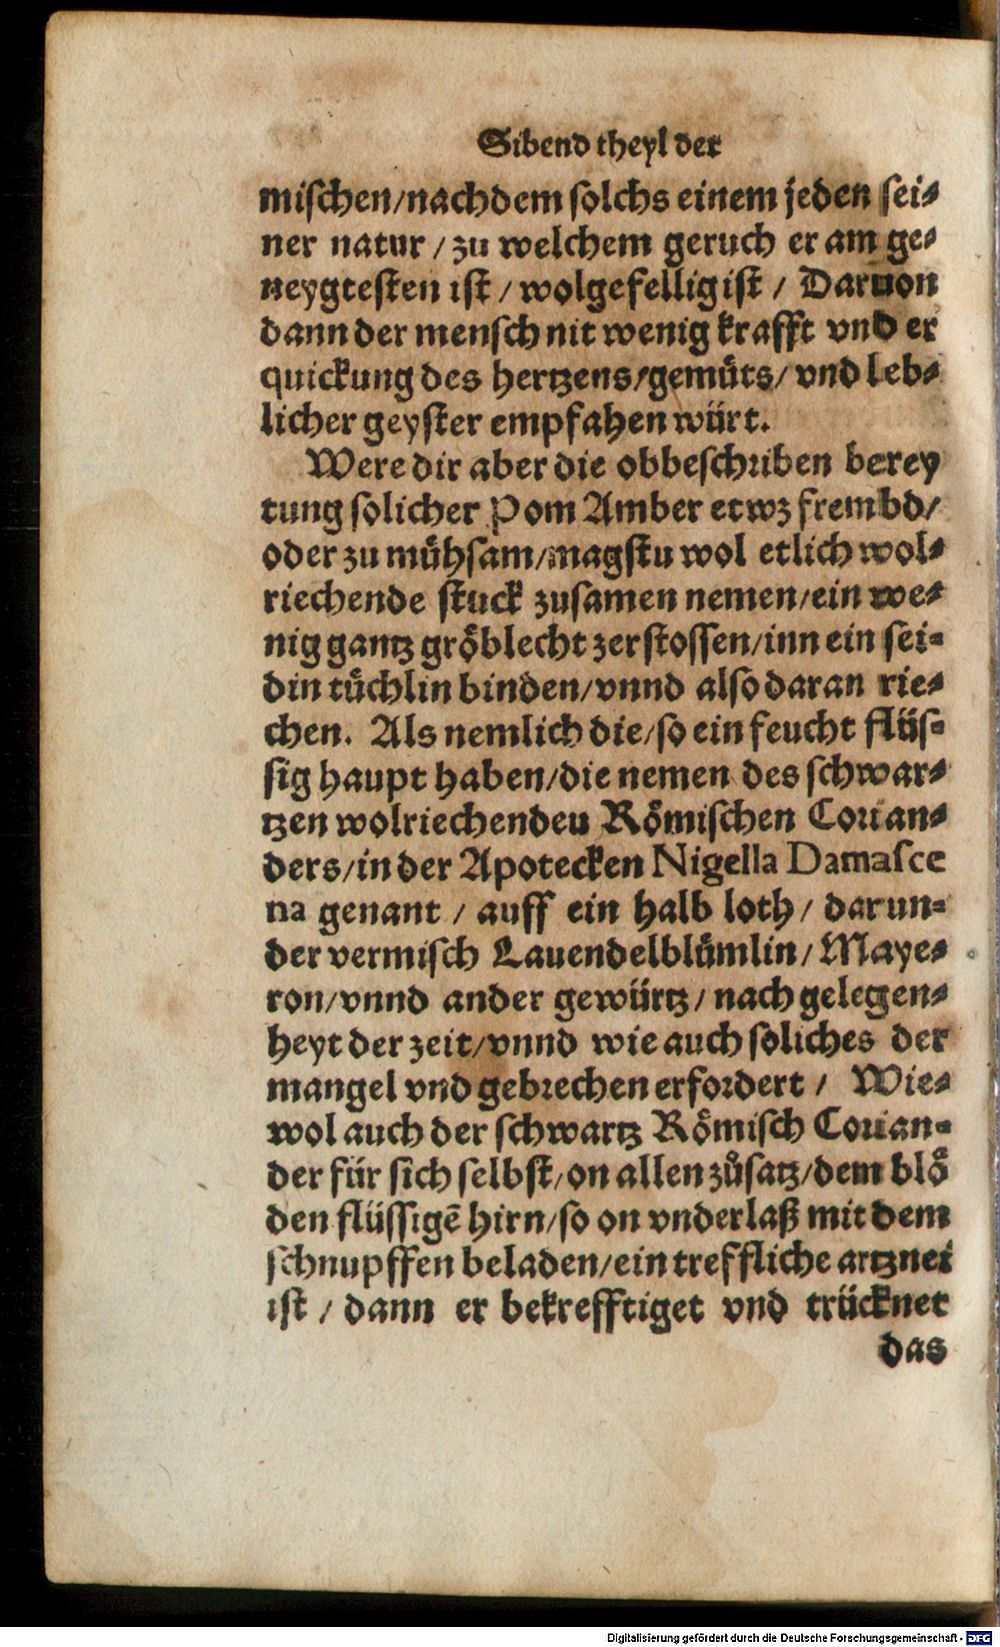 Sibend theyl der
mischen/nachdem solchs einem jeden sei⸗
ner natur / zu welchem geruch er am ge⸗
neygtesten ist / wolgefellig ist / Daruon
dann der mensch nit wenig krafft vnd er
quickung des hertzens/gemüts/ vnd leb⸗
licher geyster empfahen würt.
Were dir aber die obbeschriben berey
tung solicher Pom Amber etwz frembd/
oder zu mühsam/magstu wol etlich wol⸗
riechende stuck zusamen nemen/ein we⸗
nig gantz gröblecht zerstossen/inn ein sei⸗
din tüchlin binden/vnnd also daran rie⸗
chen. Als nemlich die/so ein feucht flüs⸗
sig haupt haben/die nemen des schwar⸗
tzen wolriechendeu Römischen Corian⸗
ders/in der Apotecken Nigella Damasce
na genant / auff ein halb loth/ darun⸗
der vermisch Lauendelblümlin/ Maye⸗
ron/vnnd ander gewürtz/ nach gelegen⸗
heyt der zeit/vnnd wie auch soliches der
mangel vnd gebrechen erfordert / Wie⸗
wol auch der schwartz Römisch Corian⸗
der für sich selbst/on allen zůsatz/dem blö
den flüssigē hirn/so on vnderlaß mit dem
schnupffen beladen/ein treffliche artznei
ist / dann er bekrefftiget vnd trücknet
das
Digitalisierung gefördert durch die Deutsche Forschungsgemeinschaft - DFG